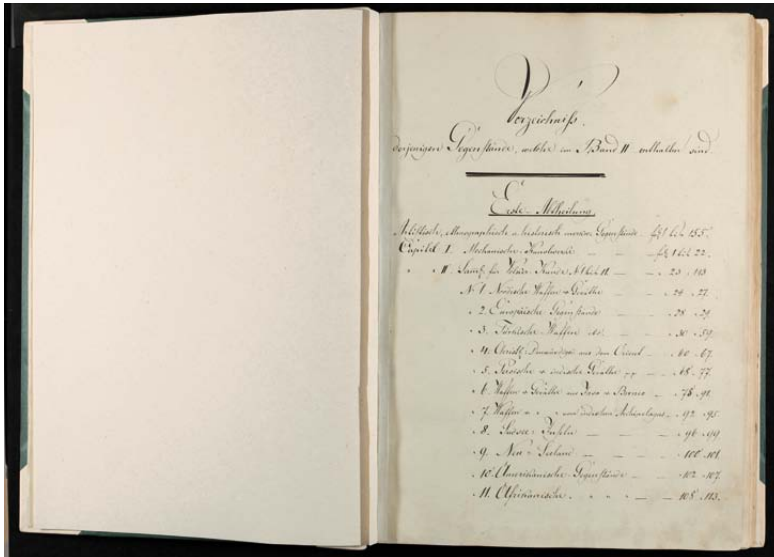 Verzeichniß
derjenigen Gegenstände, welche im Band II enthalten sind.
Erste Abtheilung.
Artistische, ethnographische u. historisch merkw. Gegenstände fol. 1 bis 155.
Capitel I. Mechanische Kunstwerke — — fol. 1 bis 22.
" " II. für Völker-Kunde, N. 1 bis 11. — — " 23 " 113
N. 1. Nordische Waffen u. Geräthe — " 24 " 27.
" 2. Europäische Gegenstände — — " 28 " 29.
" 3. Türkische Waffen — — " 30 " 59.
" 4. Christl. aus dem Orient — " 60 " 67.
" 5. Persische u. indische Geräthe — " 68 " 77.
" 6. Waffen u. Geräthe aus Java u. Borneo — " 78 " 91.
" 7. Waffen u. " " vom indischen Archipelagus — " 92 " 95.
" 8. Südsee-Inseln — — — " 96 " 99
" 9. Neu-Seeland — — — " 100 " 101.
" 10. Amerikanische Gegenstände — — " 102 " 107.
" 11. Afrikanische " " " — — " 108 " 113.